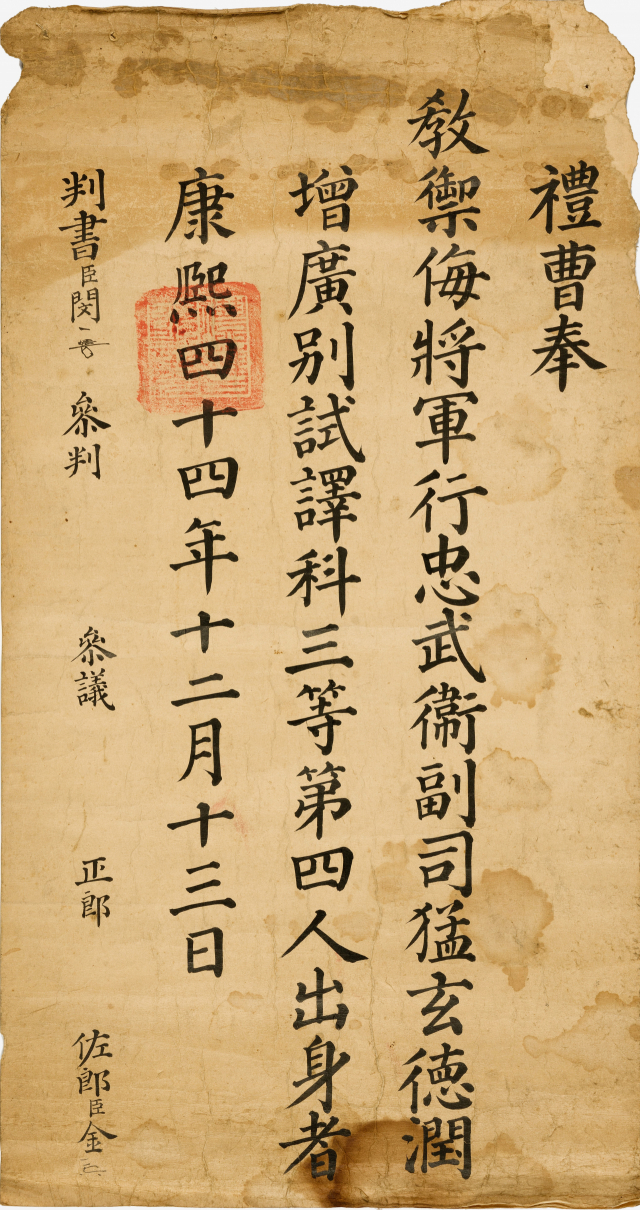 禮曹奉
教禦侮將軍行忠武衛副司猛玄德潤
增廣別試譯科三等第四人出身者
康熙四十四年十二月十三日
判書臣閔 參判 參議 正郎 佐郎臣金